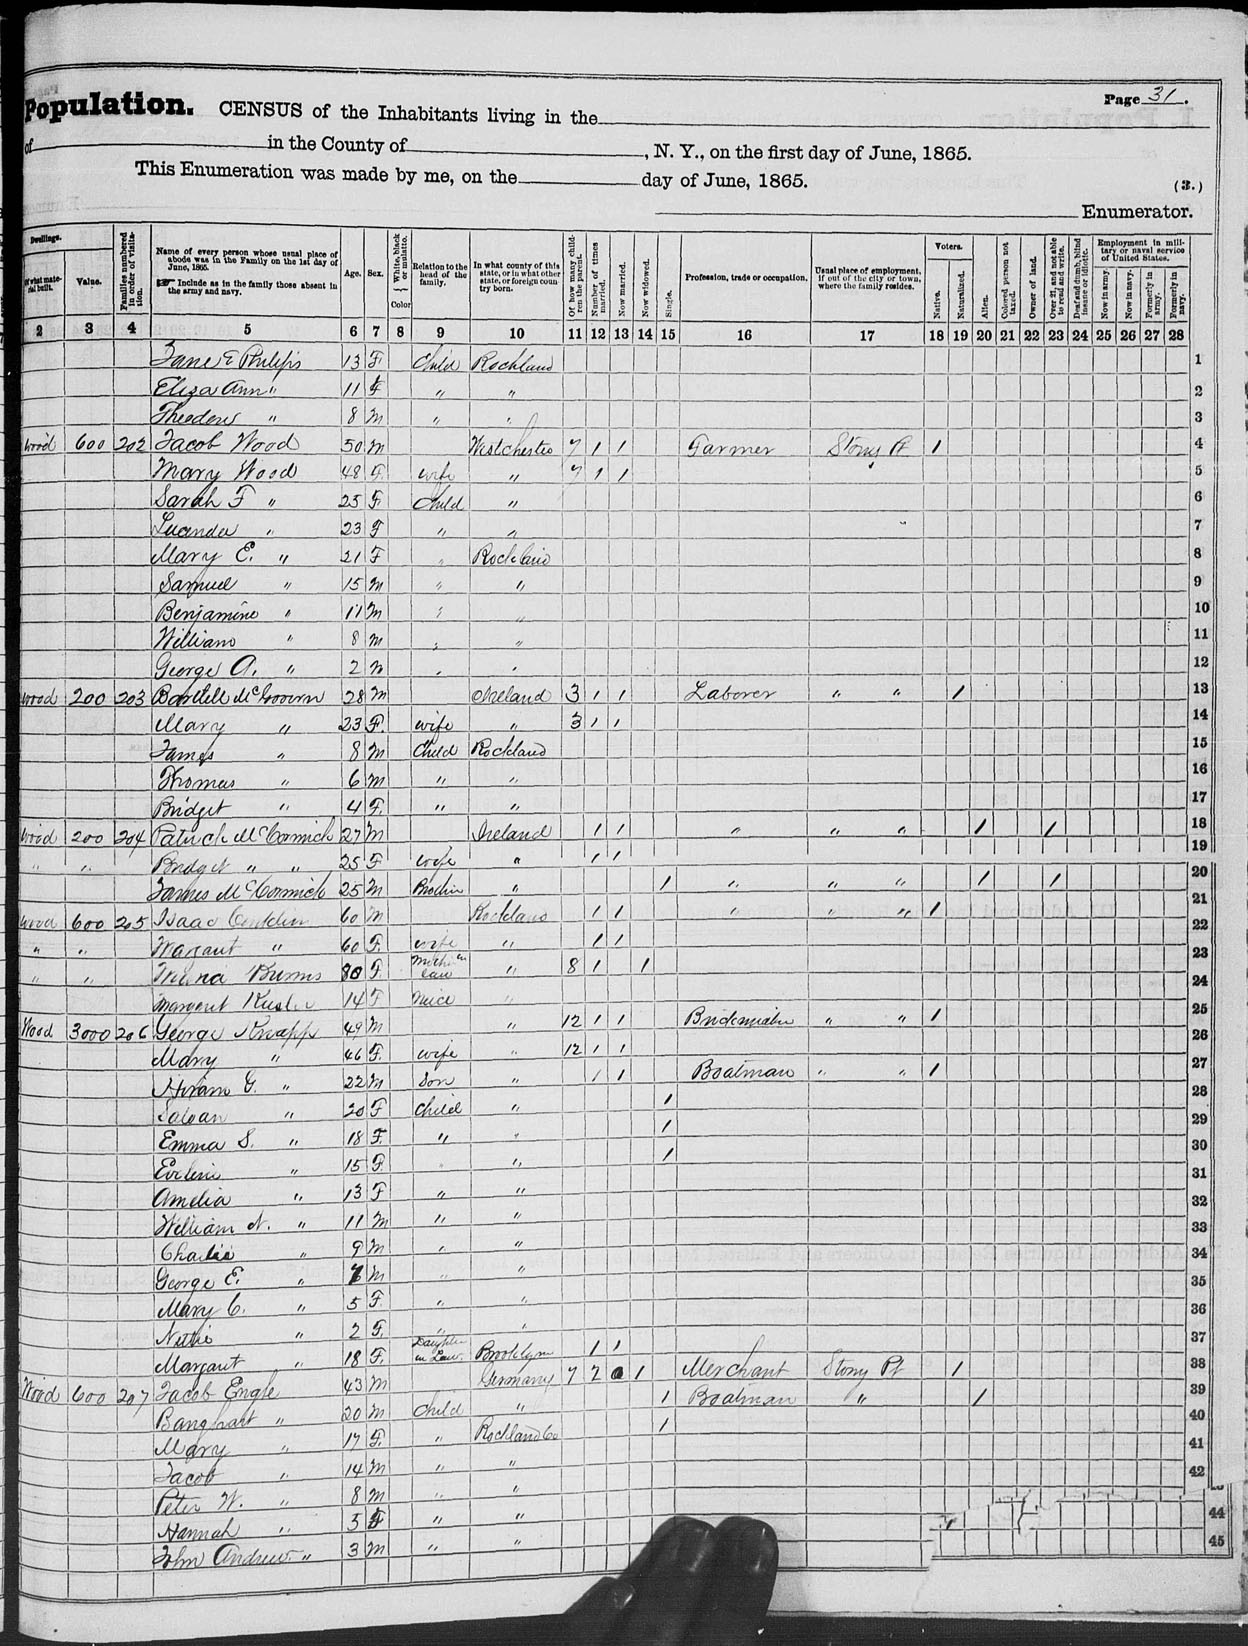 Page 31.
Population. CENSUS of the Inhabitants living in the
of in the County of , N. Y., on the first day of June, 1865.
This Enumeration was made by me, on the day of June, 1865.
(3.)
Enumerator.
Dwellings. Value. Families numbered in order of visitation. Name of every person whose usual place of abode was in the Family on the 1st day of June, 1865. Include as in the family those absent in the army and navy. Age. Sex. White, black or mulatto. Color Relation to the head of the family. In what county of this state, or in what other state, or foreign country born. Of how many children the parent. Number of times married. Now married. Now widowed. Single. Profession, trade or occupation. Usual place of employment, if out of the city or town, where the family resides. Voters. Native. Naturalized. Alien. Colored person not taxed. Owner of land. Over 21, and not able to read and write. Deaf and dumb, blind insane or idiotic. Employment in military or naval service of United States. Now in army. Now in navy. Formerly in army. Formerly in navy.
2 3 4 5 6 7 8 9 10 11 12 13 14 15 16 17 18 19 20 21 22 23 24 25 26 27 28
Jane E Philips 13 F Child Rockland 1
Eliza Ann " 11 F " " 2
Theodore " 8 M " " 3
Wood 600 202 Jacob Wood 50 M Westchester 7 1 1 Farmer Stony Pt 1 4
Mary Wood 48 F. wife " 7 1 1 5
Sarah F " 25 F Child " 6
Lucinda " 23 F " " 7
Mary E. " 21 F " Rockland 8
Samuel " 15 M " " 9
Benjamine " 11 M " " 10
William " 8 M " " 11
George A. " 2 M " " 12
Wood 200 203 McGovern 28 M Ireland 3 1 1 Laborer " " 1 13
Mary " 23 F. wife " 3 1 1 14
James " 8 M Child Rockland 15
Thomas " 6 M " " 16
Bridget " 4 F. " " 17
Wood 200 204 Patrick McCormick 27 M Ireland 1 1 " " " 1 1 18
" " Bridget " " 25 F wife " 1 1 19
James McCormick 25 M Brother " 1 " " " 1 1 20
Wood 600 205 Isaac Conklin 60 M Rockland 1 1 " " " 1 21
" " Margaret " 60 F. wife " 1 1 22
" " Burns 80 F. Mother in law " 8 1 1 23
Margaret 14 F Niece " 24
Wood 3000 206 George Knapp 49 M " 12 1 1 " " 1 25
Mary " 46 F. wife " 12 1 1 26
Hiram G. " 22 M Son " 1 1 Boatman " " 1 27
20 F Child " 1 28
Emma S. " 18 F. " " 1 29
Eveline " 15 F. " " 1 30
Amelia " 13 F " " 31
William N. " 11 M " " 32
Charlie " 9 M " " 33
George E. " 7 M " " 34
Mary C. " 5 F. " " 35
Nettie " 2 F. " " 36
Margaret " 18 F. Daughter in Law. Brooklyn 1 1 37
Wood 600 207 Jacob Engle 43 M Germany 7 2 0 1 Merchant Stony Pt 1 38
" 20 M Child " 1 Boatman " 1 39
Mary " 17 F. " Rockland Co 1 40
Jacob " 14 M " " 41
Peter W. " 8 M " " 42
Hannah " 5 F " " 44
John Andrew " 3 M " " 45